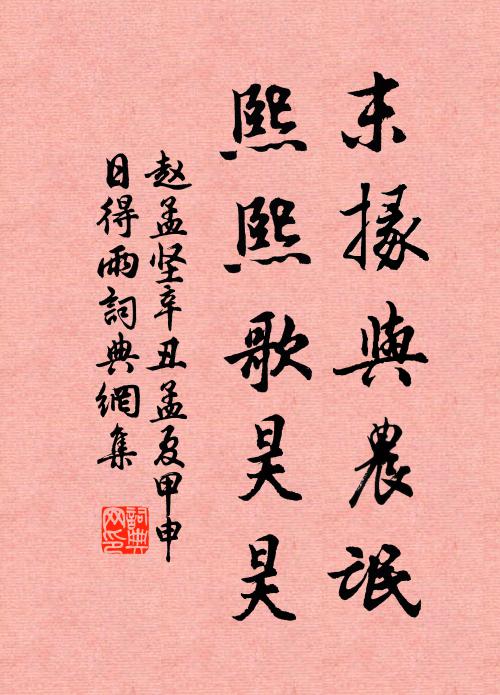 末掾與農氓
熙熙歌昊昊
赵孟坚辛丑孟夏甲申
日得雨詞典網集
詞典
网印